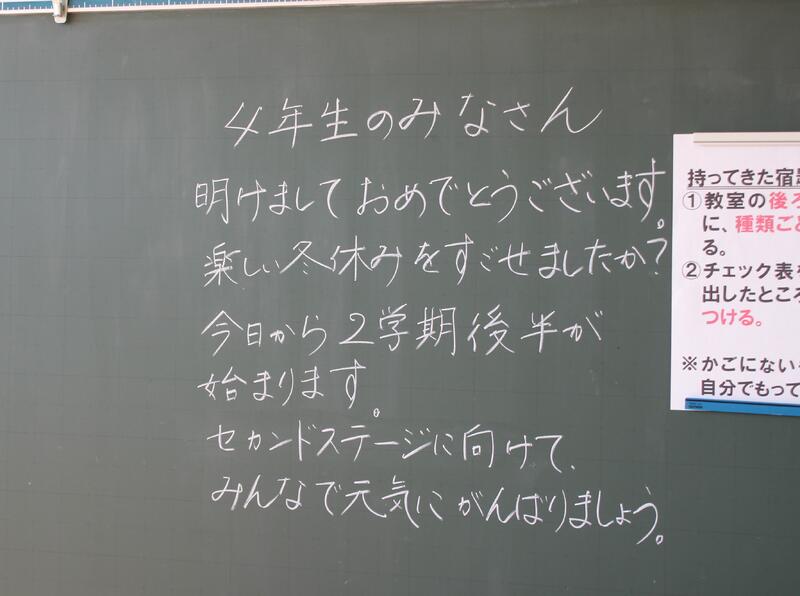 4年生のみなさん
明けましておめでとうございます。
楽しい冬休みをすごせましたか?
今日から2学期後半が
始まります。
セカンドステージに向けて、
みんなで元気にがんばりましょう。
持ってきた宿題
①教室の後ろ
に、種類ごと
る。
②チェック表を
出したところ
つける。
※かごにない
自分でもって